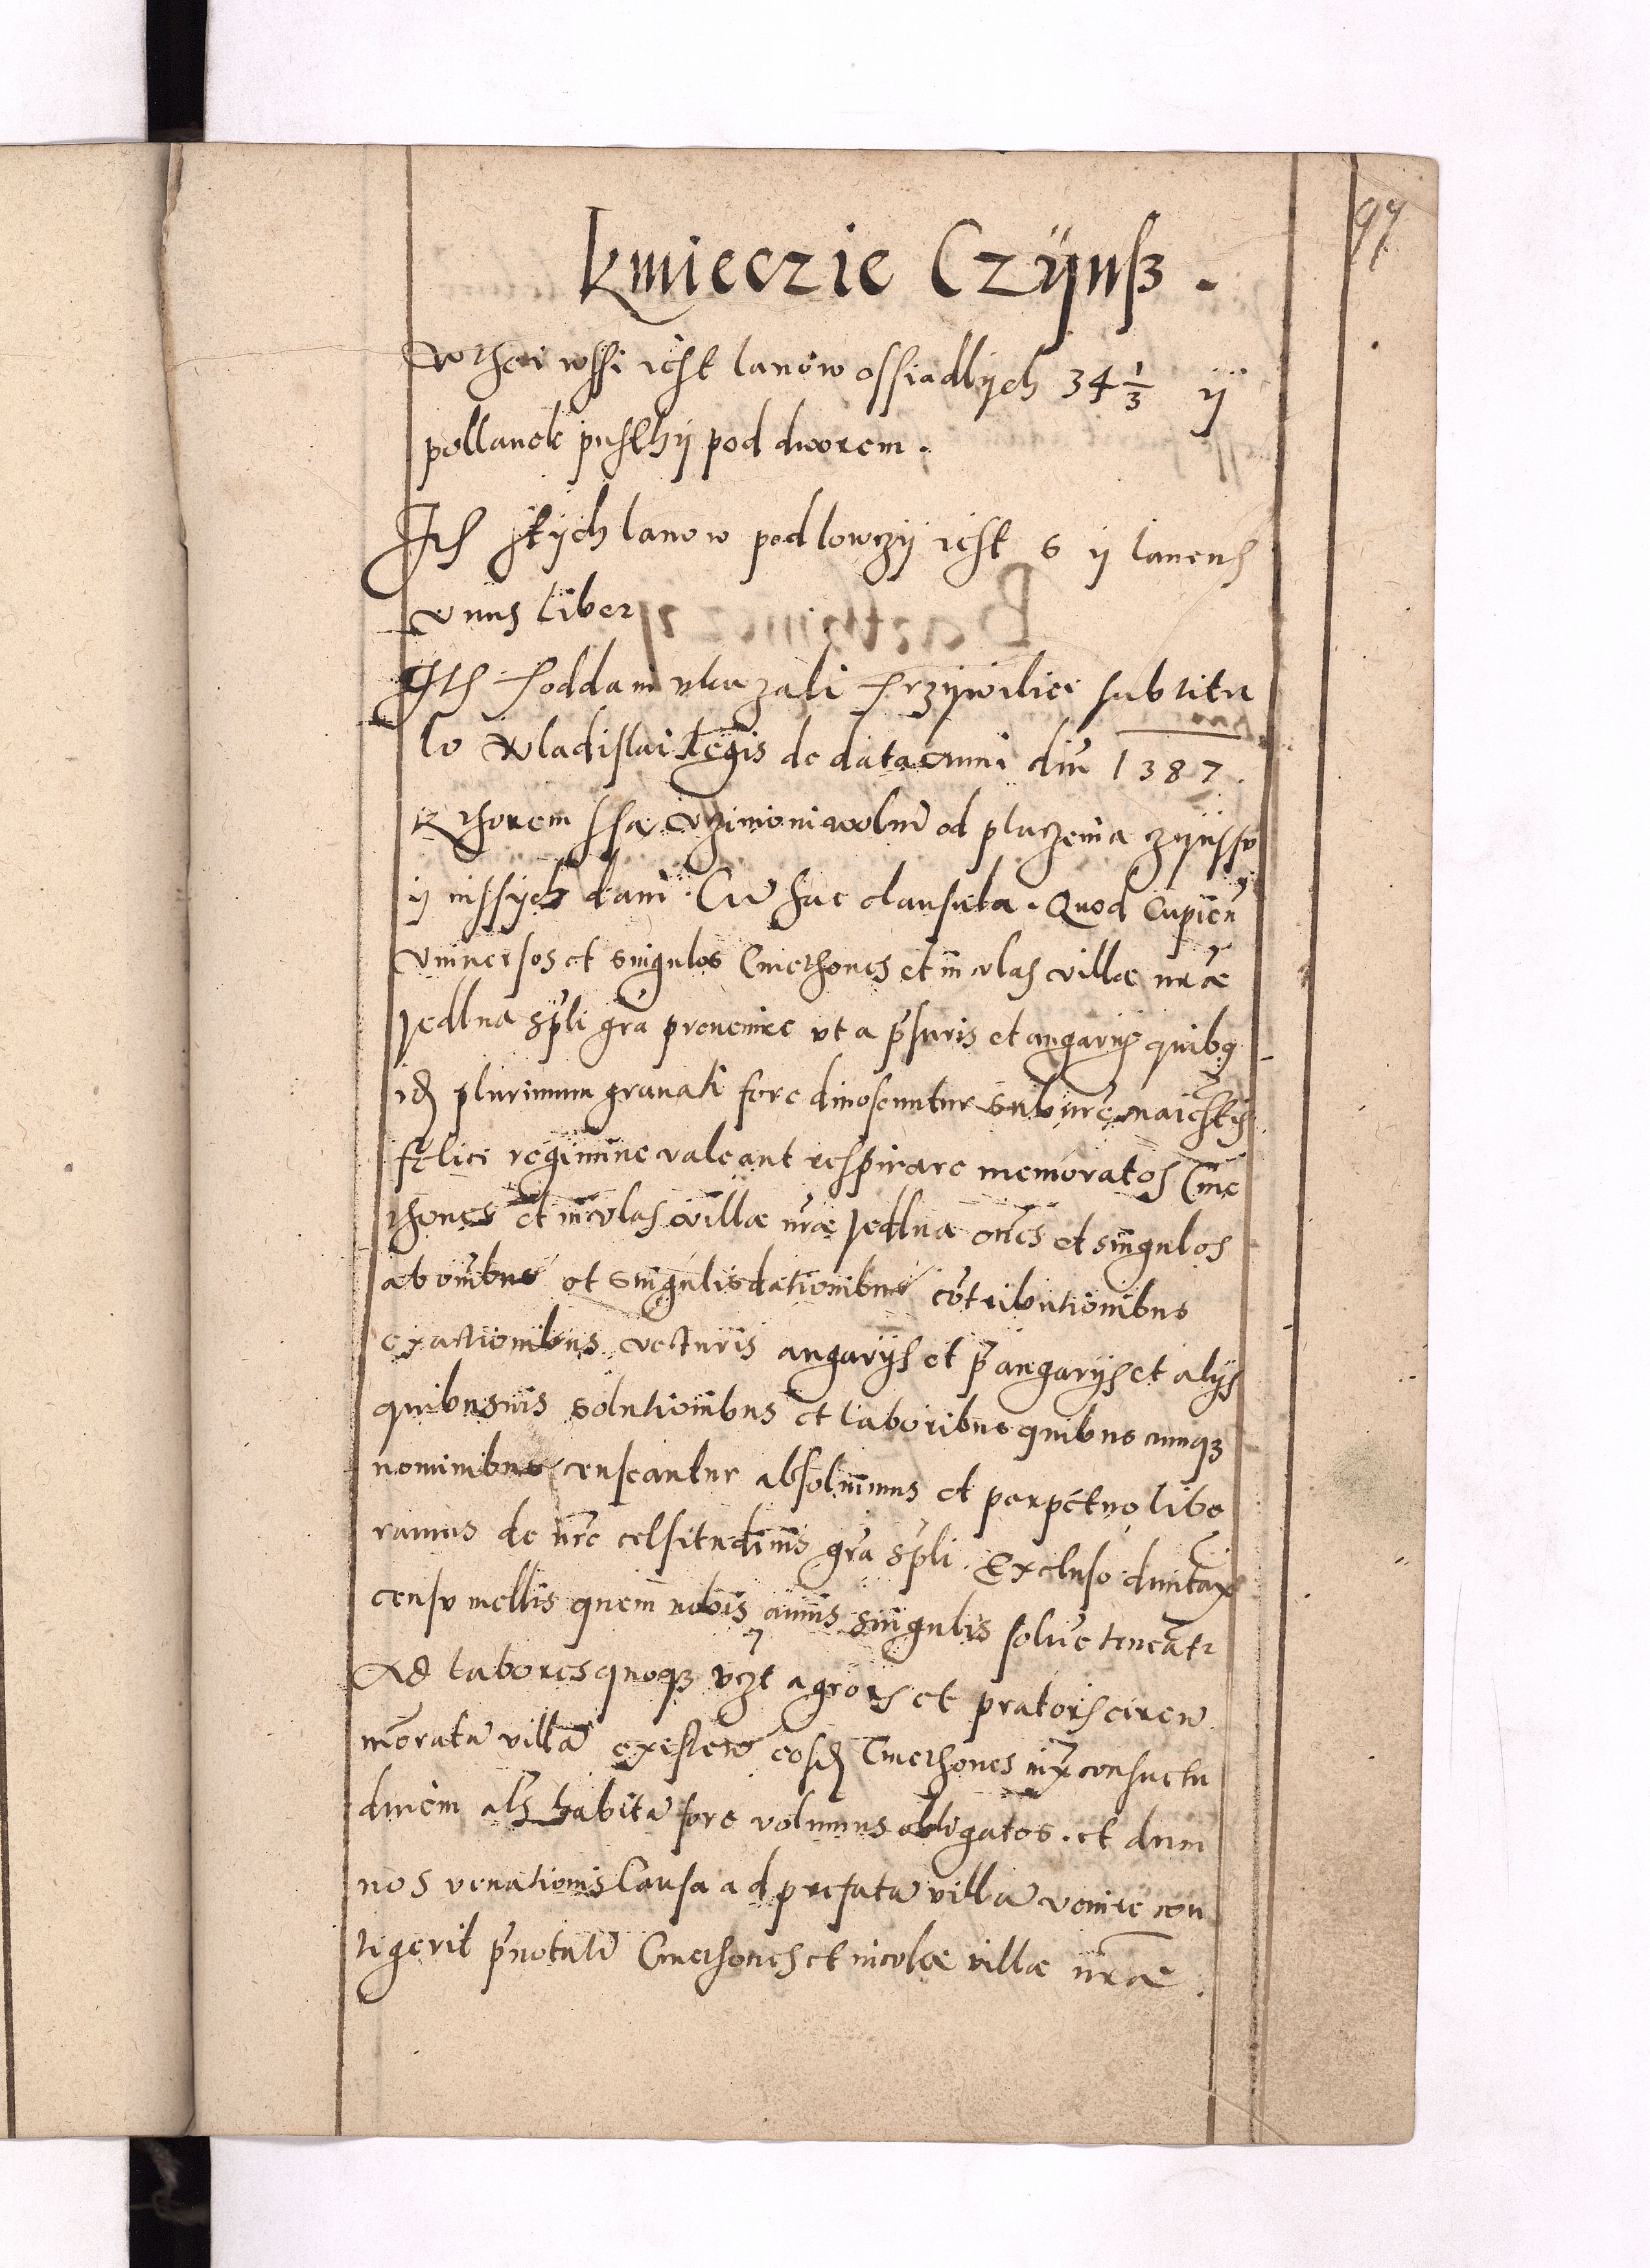 97
kmieczie Czÿnß.
W thei wssi iest lanów ossiadlÿch 34 1/3 ÿ
pollanek pusthÿ pod dworem.
Ith stÿch lanow podlowczÿ iest 6 ÿ laneus
vnus liber
Ith Poddani ukazali Przÿwiliei sub titu
lo Wladislai Regis de data anni dni 1387.
Kthorem ssa vczinioni wolni od placzenia czÿnssv
ÿ inssÿch dani. Cū hac clausula. Quod Cupien
vniuersos et singulos Cmethones et incolas villæ nræ
Jedlna spli gra prevenire vt a pssuris et angarijs quibq
id plurimum grauati fore dinoscuntur sub nre maiestis
felici regimine valeant respirare memoratos Cme
thones et incolas villæ nræ Jedlna oms et singulos
ab omibus et singulis dationibus cotributionibus
exactionibus vecturis angarijs et pangarijs et alijs
quibusuis solutionibus et laboribus quibuscunqz
nominibus censeantur absoluimus et perpetuo libe
ramus de nre celsitudinis gra spli. Excluso duntax
censu mellis quem nobis annis singulis solue teneatr
Ad labores quoqz vczt agrors et prators circu
moratā villā existen eosd Cmethones iux consuetu
dinem als habitā fore volumus obligatos. et dum
nos venationis Causa ad prefatā villā venire con
tigerit pnotati Cmethones et incolæ villæ nræ.